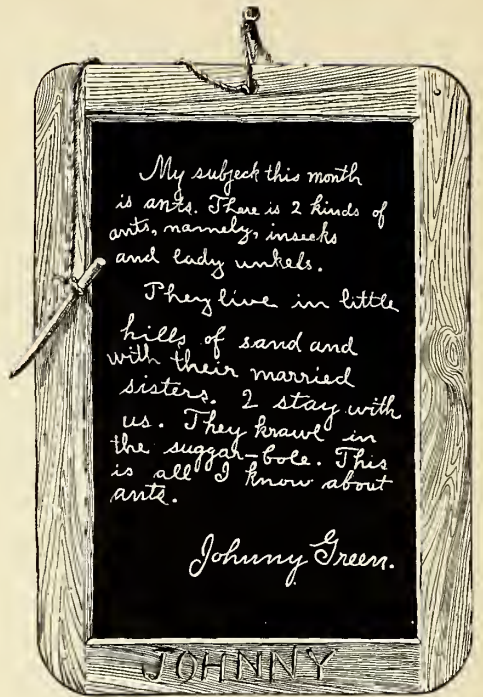 My subjeck this month
is ants. There is 2 kinds of
ants, namely, insecks
and lady unkels.
They live in little
hills of sand and
with their married
sisters. 2 stay with
us. They krawl in
the suggar-bole. This
is all I know about
ants.
Johnny Green.
JOHNNY